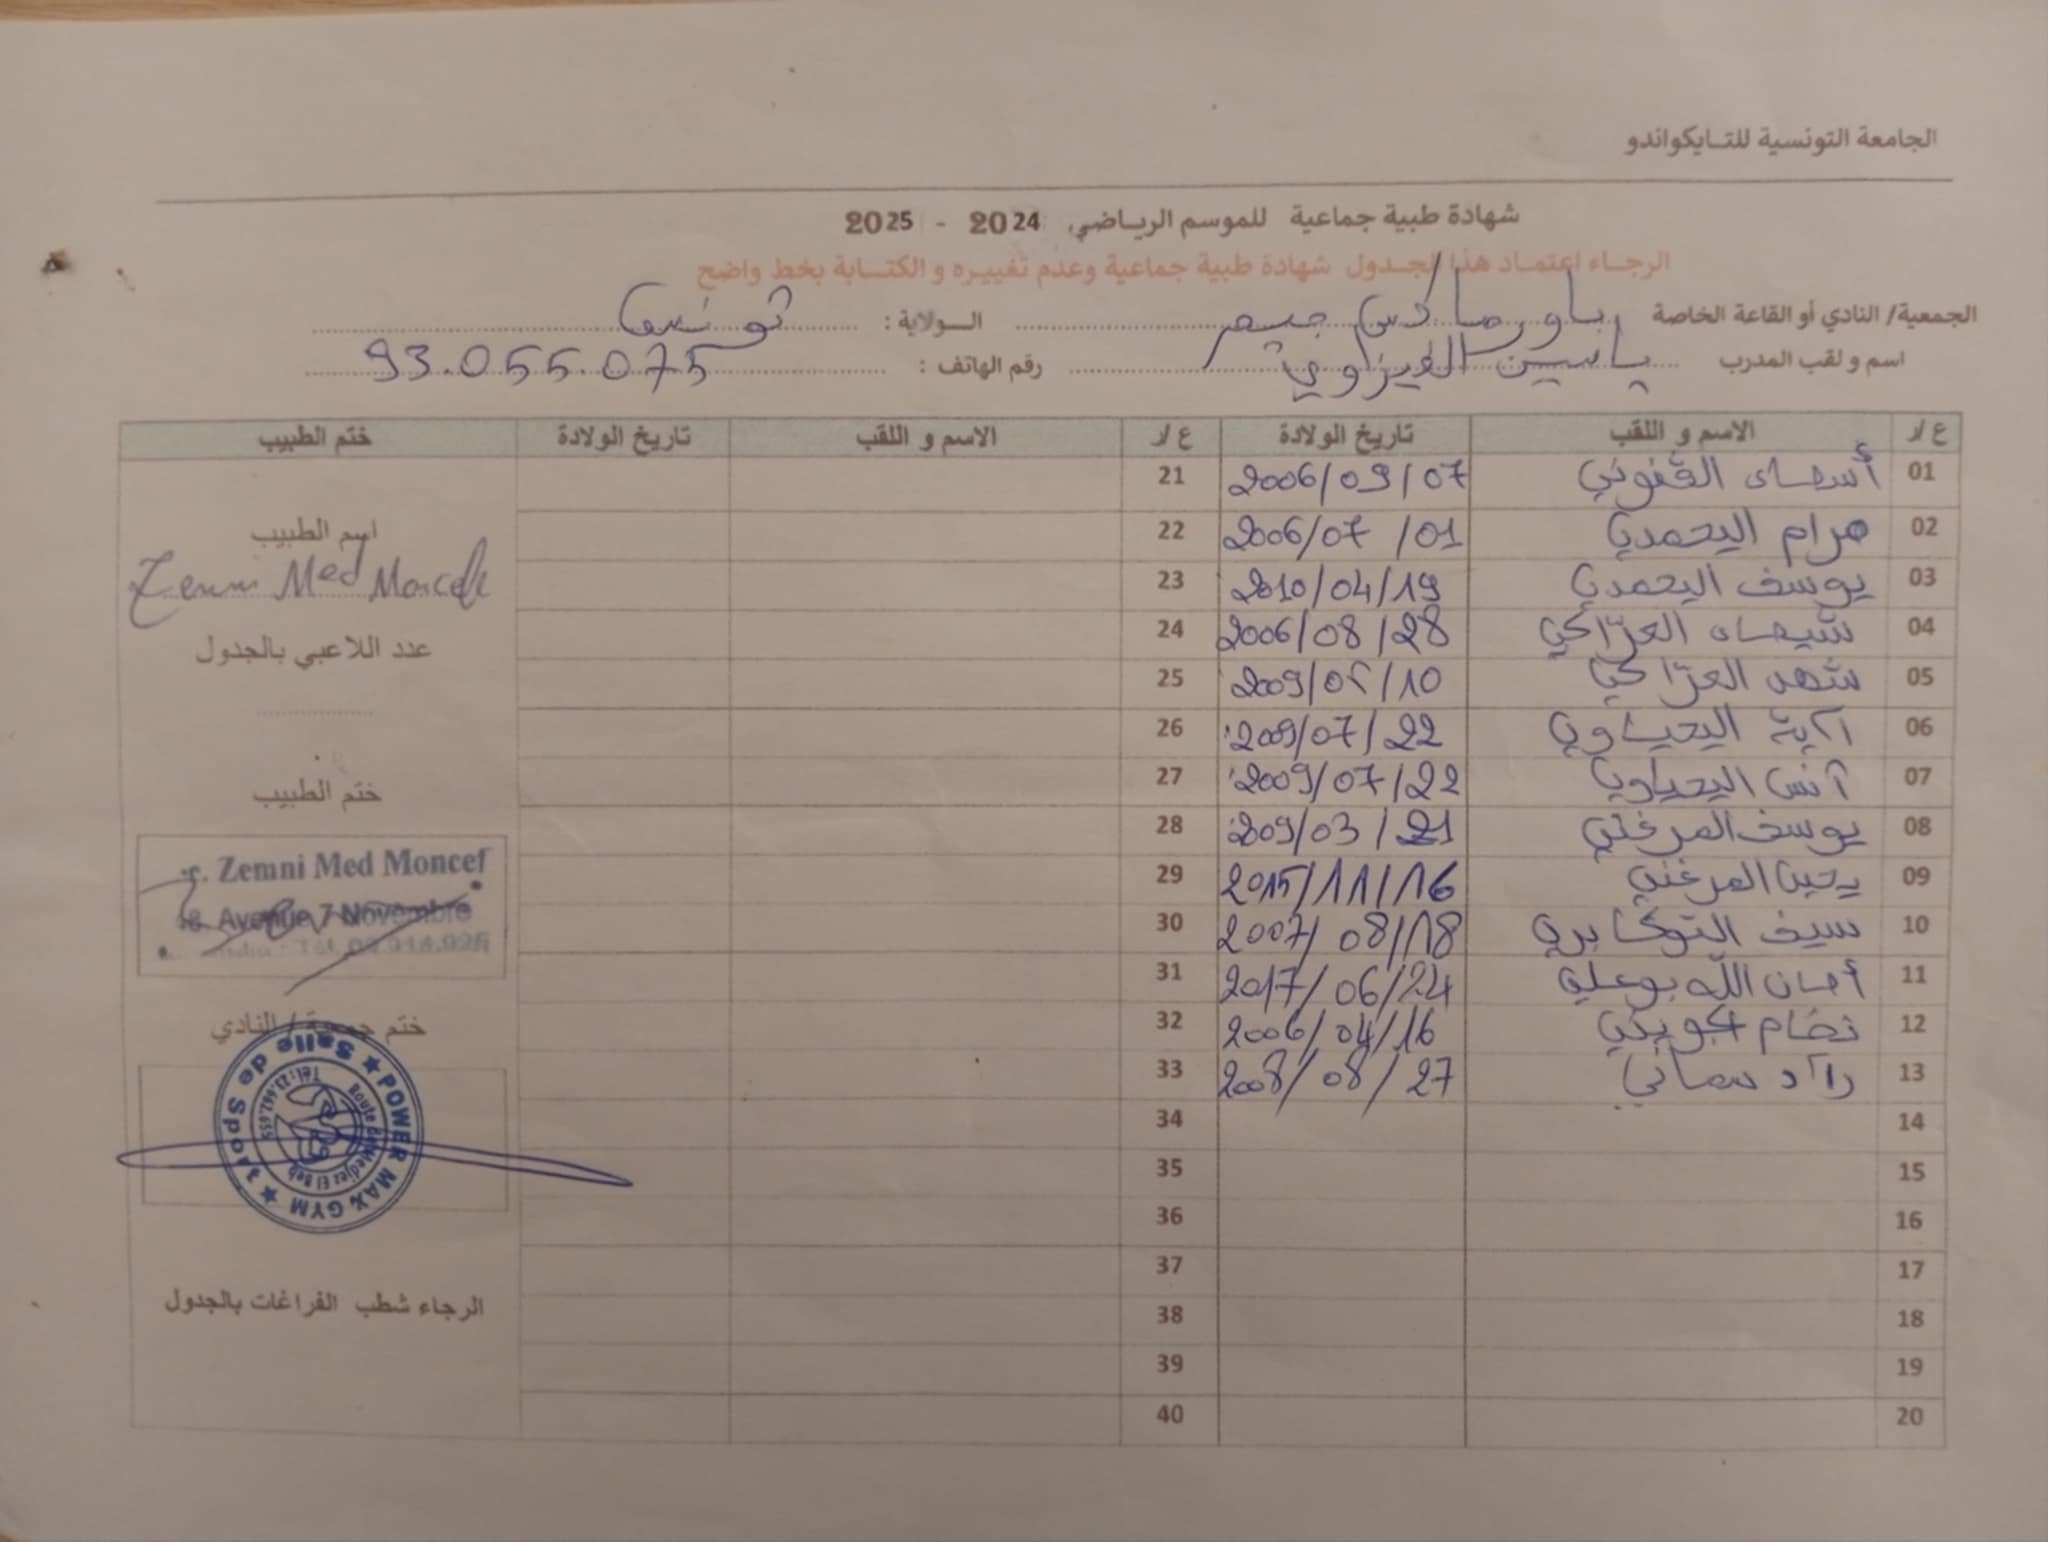 الجامعة التونسية للتـايكواندو
شهادة طبية جماعية للموسم الرياضي، 2024 - 2025
الرجـاء اعتمـاد هذا الجـدول شهادة طبية جماعية وعدم تغييـره و الكتـابة بخط واضح
الجمعية/ النادي أو القاعة الخاصة باور ماكس جيم الـولاية : تونس
اسم و لقب المدرب ياسين العيزاوي رقم الهاتف : 93.055.075
ع/ر الاسم و اللقب تاريخ الولادة ع/ر الاسم و اللقب تاريخ الولادة ختم الطبيب
01 أسماء القفوني 2006/09/07 21
02 مرام اليحمدي 2006/07/01 22
03 يوسف اليحمدي 2010/04/19 23
04 شيماء العزّاكي 2006/08/28 24
05 شهد العزّاكي 2009/05/10 25
06 آية اليحياوي 2009/07/22 26
07 آنس اليحياوي 2009/07/22 27
08 يوسف المرغني 2009/03/21 28
09 يحيى المرغني 2015/11/16 29
10 سيف التوكابري 2007/08/18 30
11 أمان الله بوعلي 2017/06/24 31
12 نضام 2006/04/16 32
13 رآد سماتي 2008/08/27 33
14 34
15 35
16 36
17 37
18 38
19 39
20 40
اسم الطبيب
Zemni Med Moncef
عدد اللاعبي بالجدول
ختم الطبيب
Zemni Med Moncef
18. Avenue 7 Novembre
ختم جمعية / النادي
★ POWER MAX GYM ★ Salle de Sport
Route de Medjez El Beb
الرجاء شطب الفراغات بالجدول